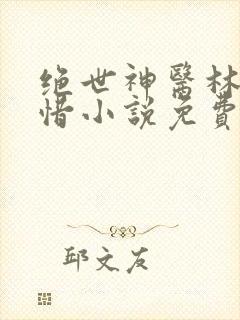 绝世神醫林
惜小説免費
邱文友